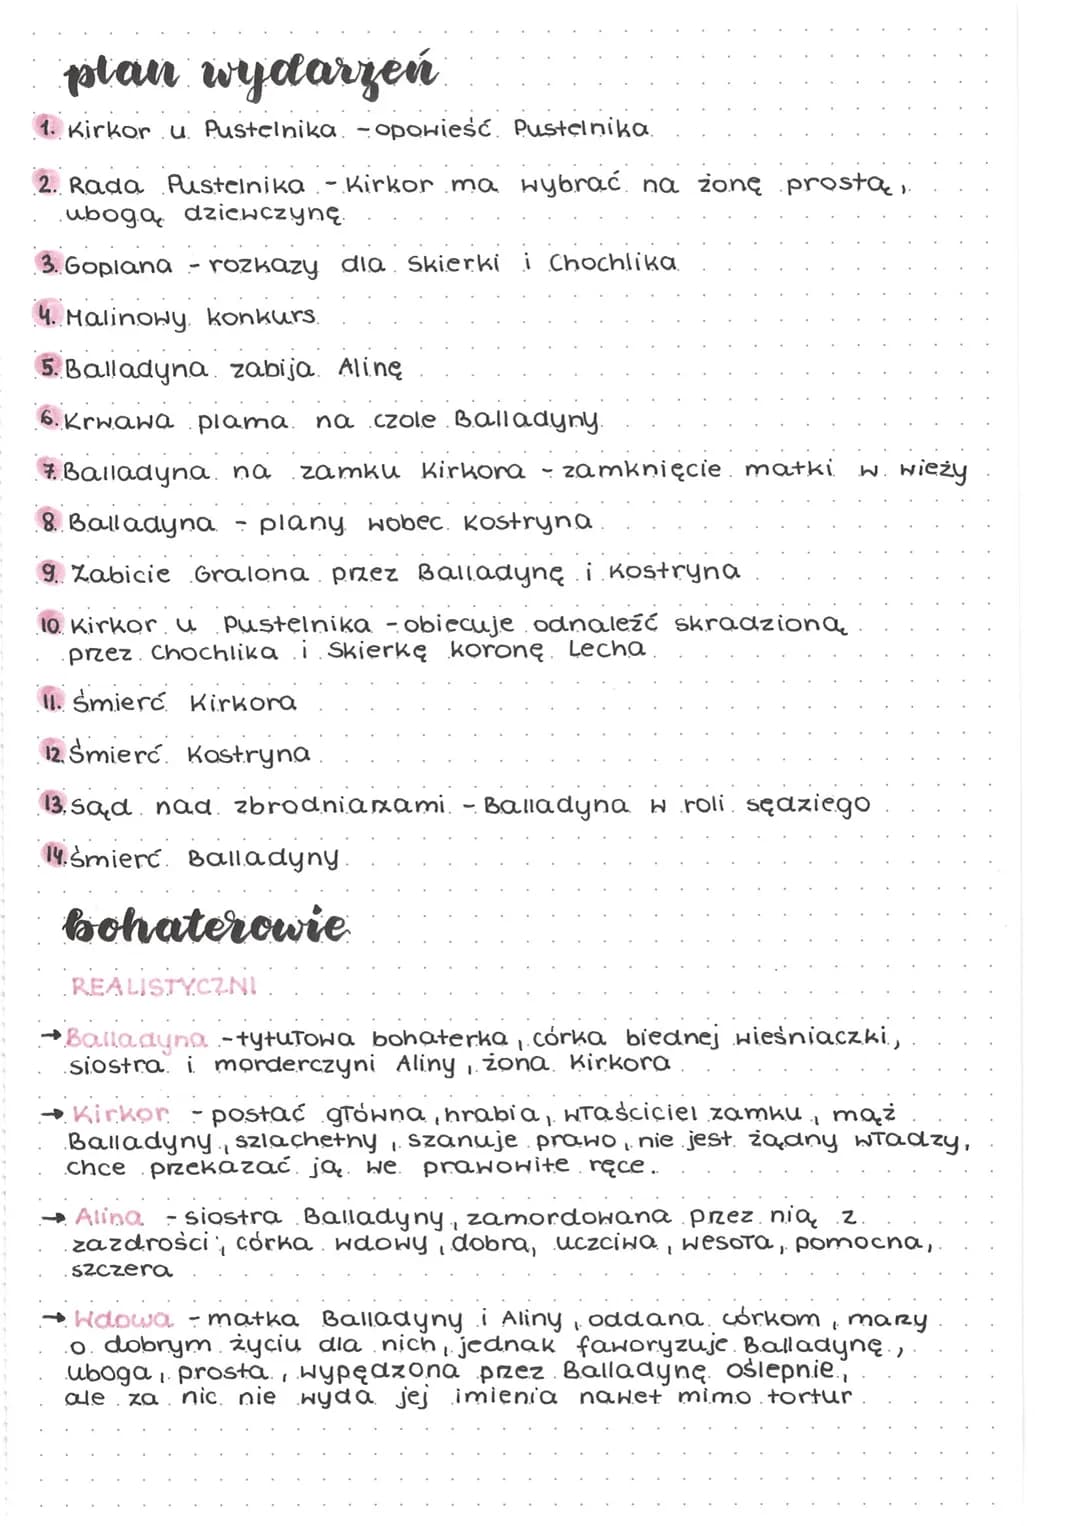 plan wydarzeń
1. Kirkor u Pustelnika - opowieść Pustelnika
2. Rada Pustelnika - Kirkor ma wybrać na żonę prostą,
ubogą dziewczynę
3. Goplana - rozkazy dla Skierki i Chochlika
4. Malinowy konkurs
5. Balladyna zabija Alinę
6. Krwawa plama na czole Balladyny
7. Balladyna na zamku Kirkora - zamknięcie matki w wieży
8. Balladyna - plany wobec Kostryna
9. Zabicie Gralona przez Balladynę i Kostryna
10. Kirkor u Pustelnika - obiecuje odnaleźć skradzioną
przez Chochlika i Skierkę koronę Lecha
11. Śmierć Kirkora
12. Śmierć Kostryna
13. sąd nad zbrodniarzami - Balladyna w roli sędziego
14. Śmierć Balladyny
bohaterowie
REALISTYCZNI
→ Balladyna - tytułowa bohaterka, córka biednej wieśniaczki,
siostra i morderczyni Aliny, żona Kirkora
→ Kirkor - postać główna, hrabia, właściciel zamku, mąż
Balladyny, szlachetny, szanuje prawo, nie jest żądny władzy,
chce przekazać ją we prawowite ręce.
→ Alina - siostra Balladyny, zamordowana przez nią z
zazdrości, córka wdowy, dobra, uczciwa, wesoła, pomocna,
szczera
→ Wdowa - matka Balladyny i Aliny, oddana córkom, marzy
o dobrym życiu dla nich, jednak faworyzuje Balladynę,
uboga, prosta, wypędzona przez Balladynę oślepnie,
ale za nic nie wyda jej imienia nawet mimo tortur